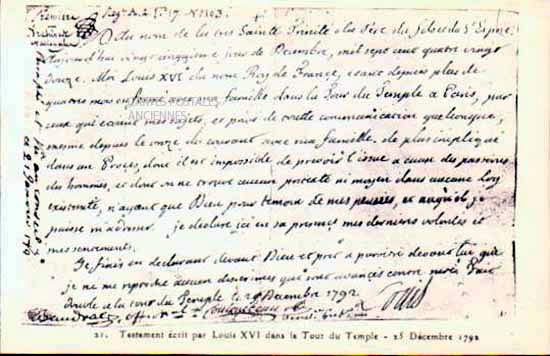 Au nom de la tres Sainte Trinité du Pere du fils et du St Esprit.
aujourd'hui vingt cinquieme jour de Decembre, mil sept cent quatre vingt
douze. Moi Louis XVI du nom Roy de France, etant depuis plus de
quatre mois enfermé avec ma famille dans la Tour du Temple a Paris, par
CARTES POSTALES
ANCIENNES
ceux qui etoient mes sujets, et privé de toute communication quelconque,
mesme depuis le onze du courant avec ma famille. de plus impliqué
dans un Proces, dont il est impossible de prevoir l'issue a cause des passions
des hommes, et dont on ne trouve aucun pretexte ni moyen dans aucune Loy
existante, n'ayant que Dieu pour temoin de mes pensées, et auquel je
puisse m'adresser. je declare ici en sa presence mes dernieres volontés et
mes sentiments.
Je finis en declarant devant Dieu et pret a paroitre devant lui que
je ne me reproche aucun des crimes qui sont avancés contre moi. Fait
double a la tour du Temple le 25 Decembre 1792.
Louis
21. Testament écrit par Louis XVI dans la Tour du Temple - 25 Décembre 1792